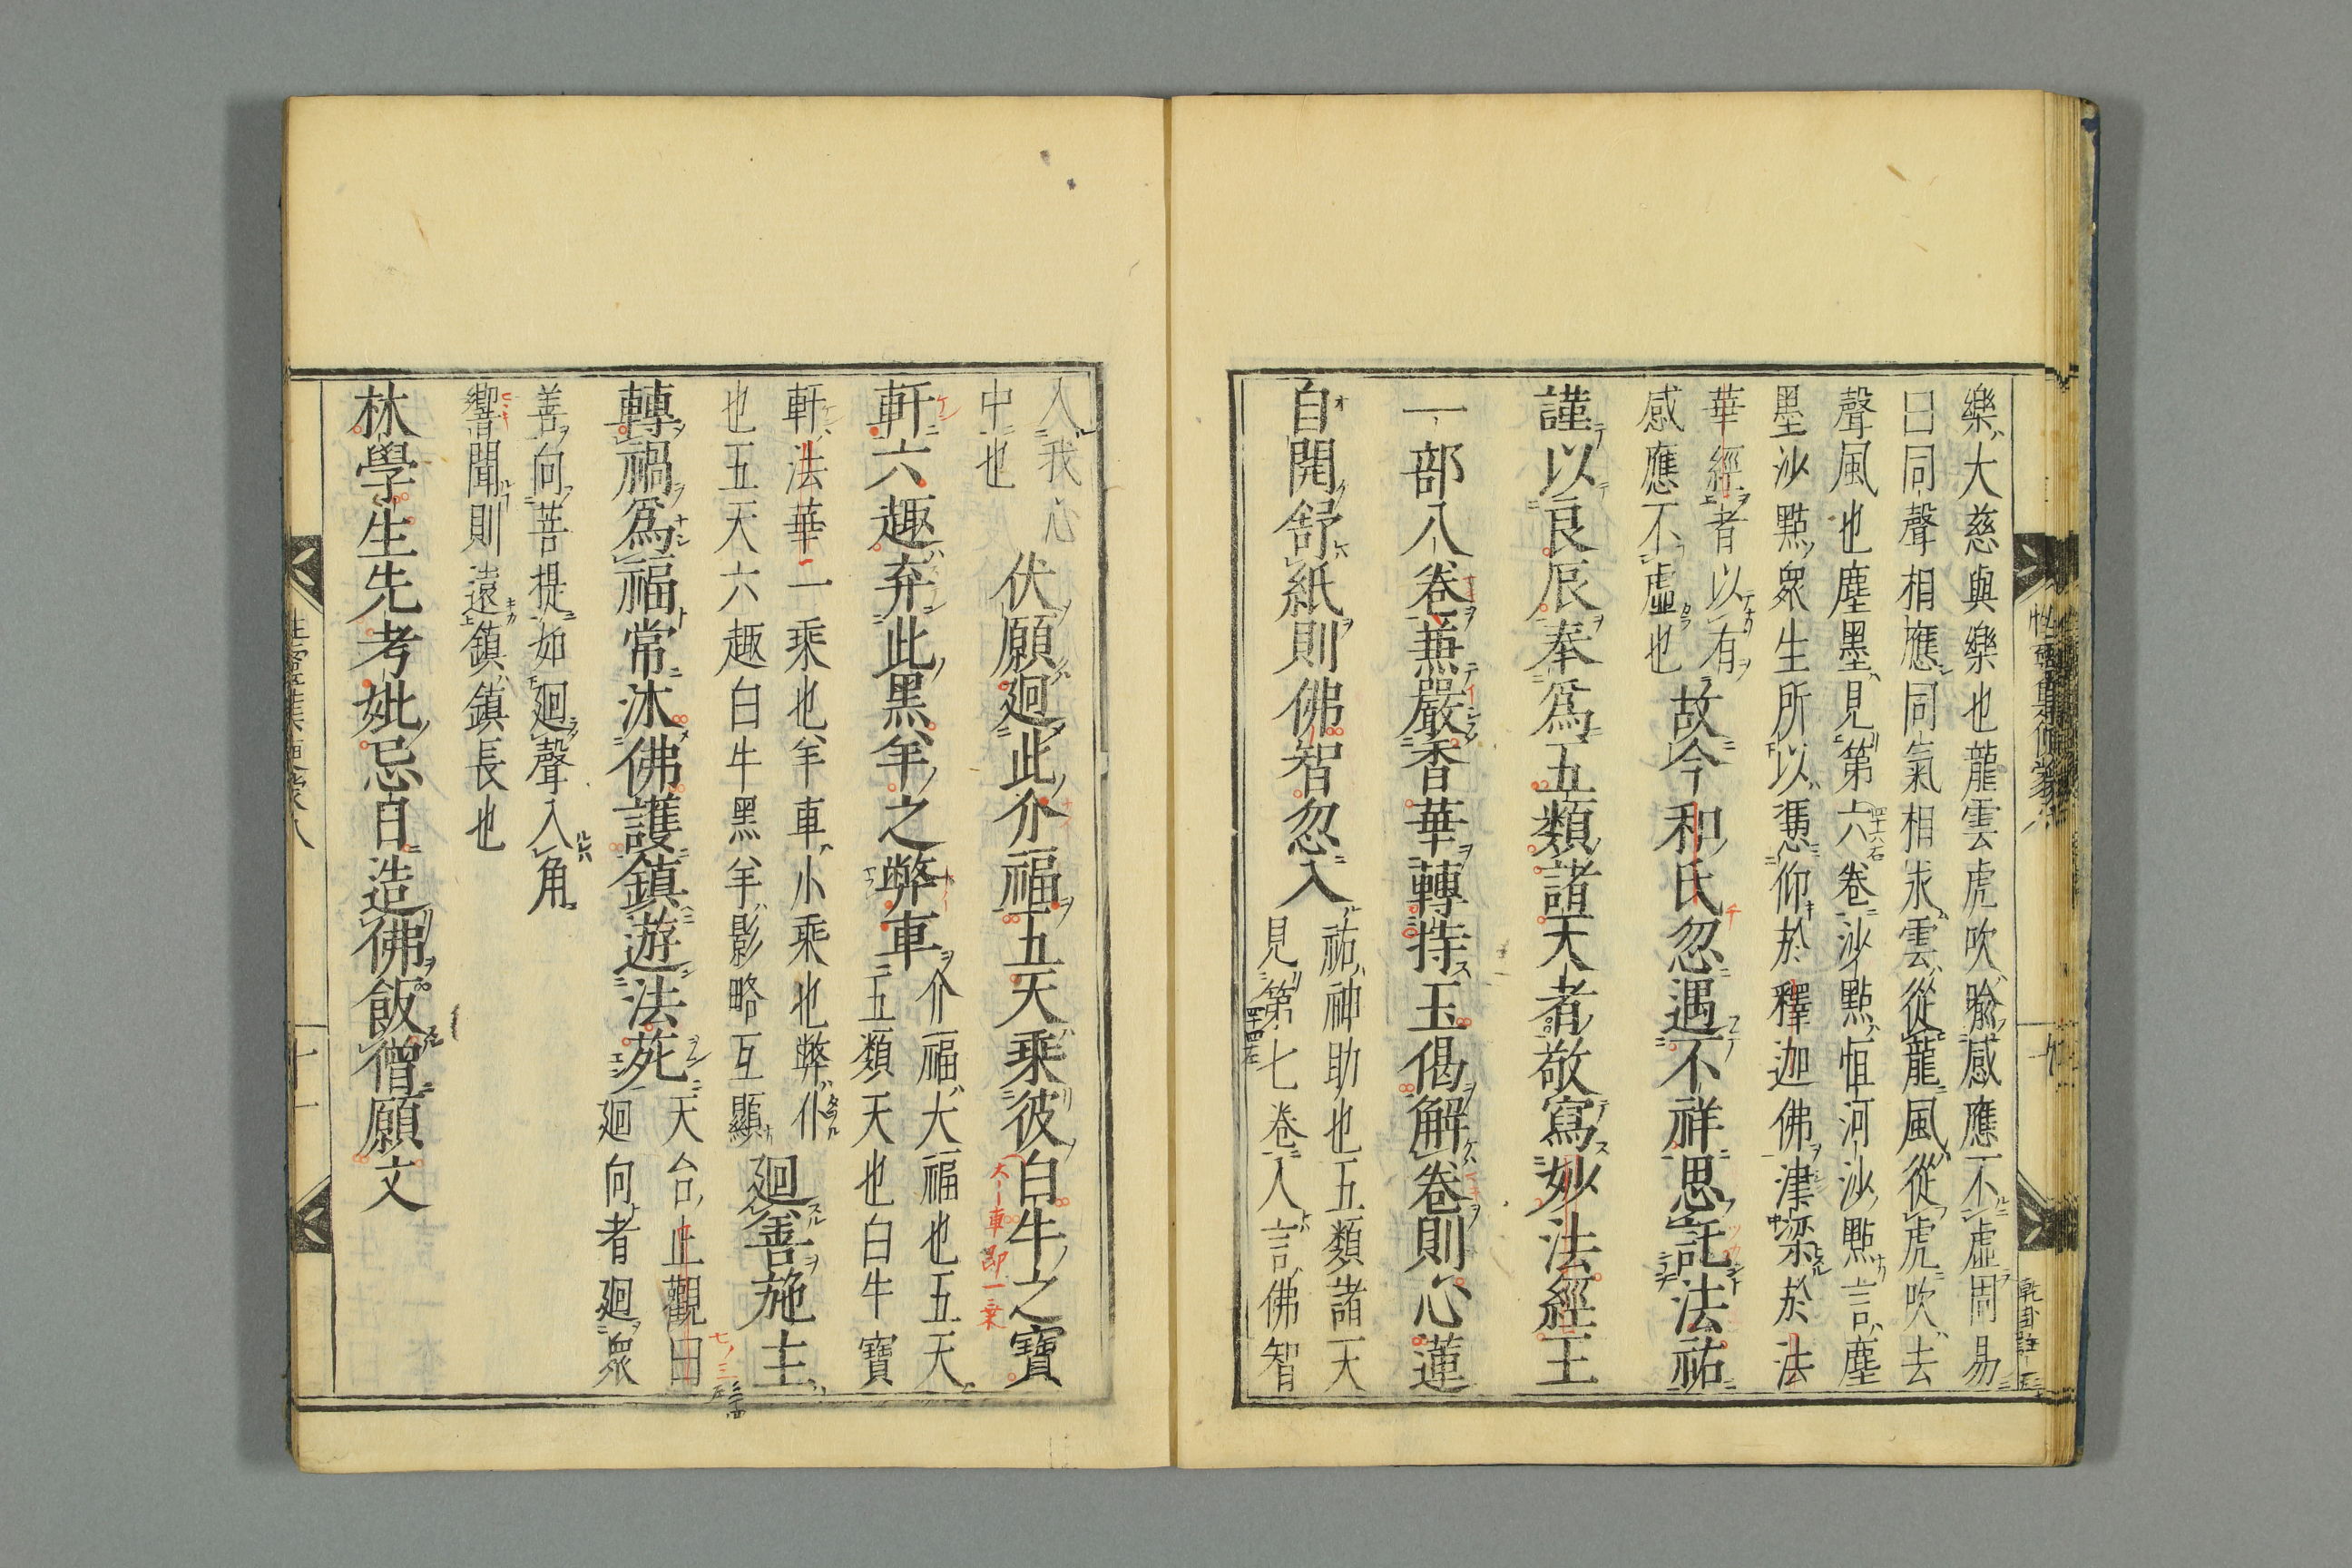 樂大慈與樂也龍雲虎吹喩感應不虛周易
曰同聲相應同氣相求雲從龍風從虎吹去
聲風也塵墨見第六卷沙點恒河沙點言塵
墨沙點衆生所以憑仰於釋迦佛津梁於法
華經者以有
感應不虛也
故今和氏忽遇不祥思託法祐
謹以良辰奉爲五類諸天者敬寫妙法經王
一部八卷兼嚴香華轉持玉偈解卷則心蓮
自開舒紙則佛智忽入
祐神助也五類諸天
見第七卷人言佛智
入我心
中也
伏願廻此介福五天乘彼白牛之寶
軒六趣弃此黑羊之弊車
介福大福也五天
五類天也白牛寶
軒法華一乘也羊車小乘也弊仆
也五天六趣白牛黑羊影略互顯
廻善施主
轉禍爲福常沐佛護鎭遊法苑
天台止觀曰
廻向者廻衆
善向菩提如廻聲入角
響聞則遠鎭鎭長也
林學生先考妣忌日造佛飯僧願文
大ー車即一乘
乾卦註
十一